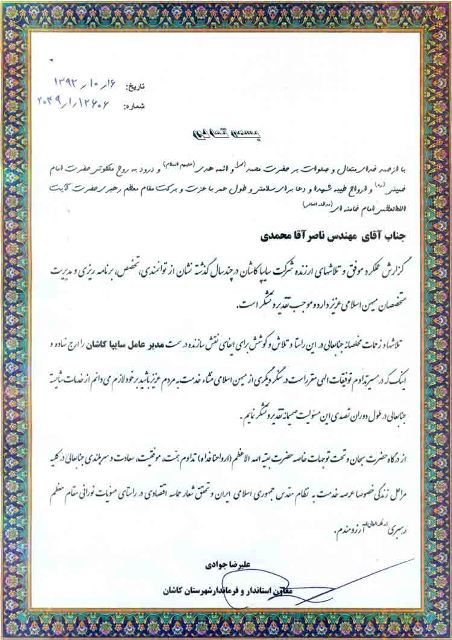 تاریخ: ۱۳۹۲/۱۰/۱۶
شماره: ۲۰۴۹/۱/۱۲۶۰۶
با ترجمه خدای متعال و صلوات بر حضرت محمد (ص) و ائمه هدی (علیهم السلام) و درود به روح ملکوتی حضرت امام
خمینی (ره) و ارواح طیبه شهدا و دعا برای سلامتی و طول عمر با عزت و برکت مقام معظم رهبری حضرت آیت
الله العظمی امام خامنه ای (مدظله العالی)
جناب آقای مهندس ناصر آقا محمدی
گزارش عملکرد موفق و تلاشهای ارزنده شرکت سایپا کاشان در چند سال گذشته نشان از توانمندی، تخصص، برنامه ریزی و مدیریت
متخصصان میهن اسلامی عزیز دارد و موجب تقدیر و تشکر است.
تلاشها و زحمات مخلصانه جنابعالی در این راستا و تلاش و کوشش برای ایفای نقش سازنده در سمت مدیر عامل سایپا کاشان را ارج نهاده و
اینک که در مسیر تداوم توفیقات الهی مقرر است در سنگر دیگری از میهن اسلامی منشاء خدمت به مردم عزیز باشید بر خود لازم می دانم از خدمات شایسته
جنابعالی در طول دوران تصدی این مسئولیت صمیمانه تقدیر و تشکر نمایم.
از درگاه حضرت سبحان و تحت توجهات خاصه حضرت بقیه الله الاعظم (ارواحنا فداه) تداوم عزت، موفقیت، سعادت و سربلندی جنابعالی در کلیه
مراحل زندگی خصوصا عرصه خدمت به نظام مقدس جمهوری اسلامی ایران و تحقق شعار حماسه اقتصادی در راستای منویات نورانی مقام معظم
رهبری (مدظله العالی) آرزومندم.
علیرضا جوادی
معاون استاندار و فرماندار شهرستان کاشان